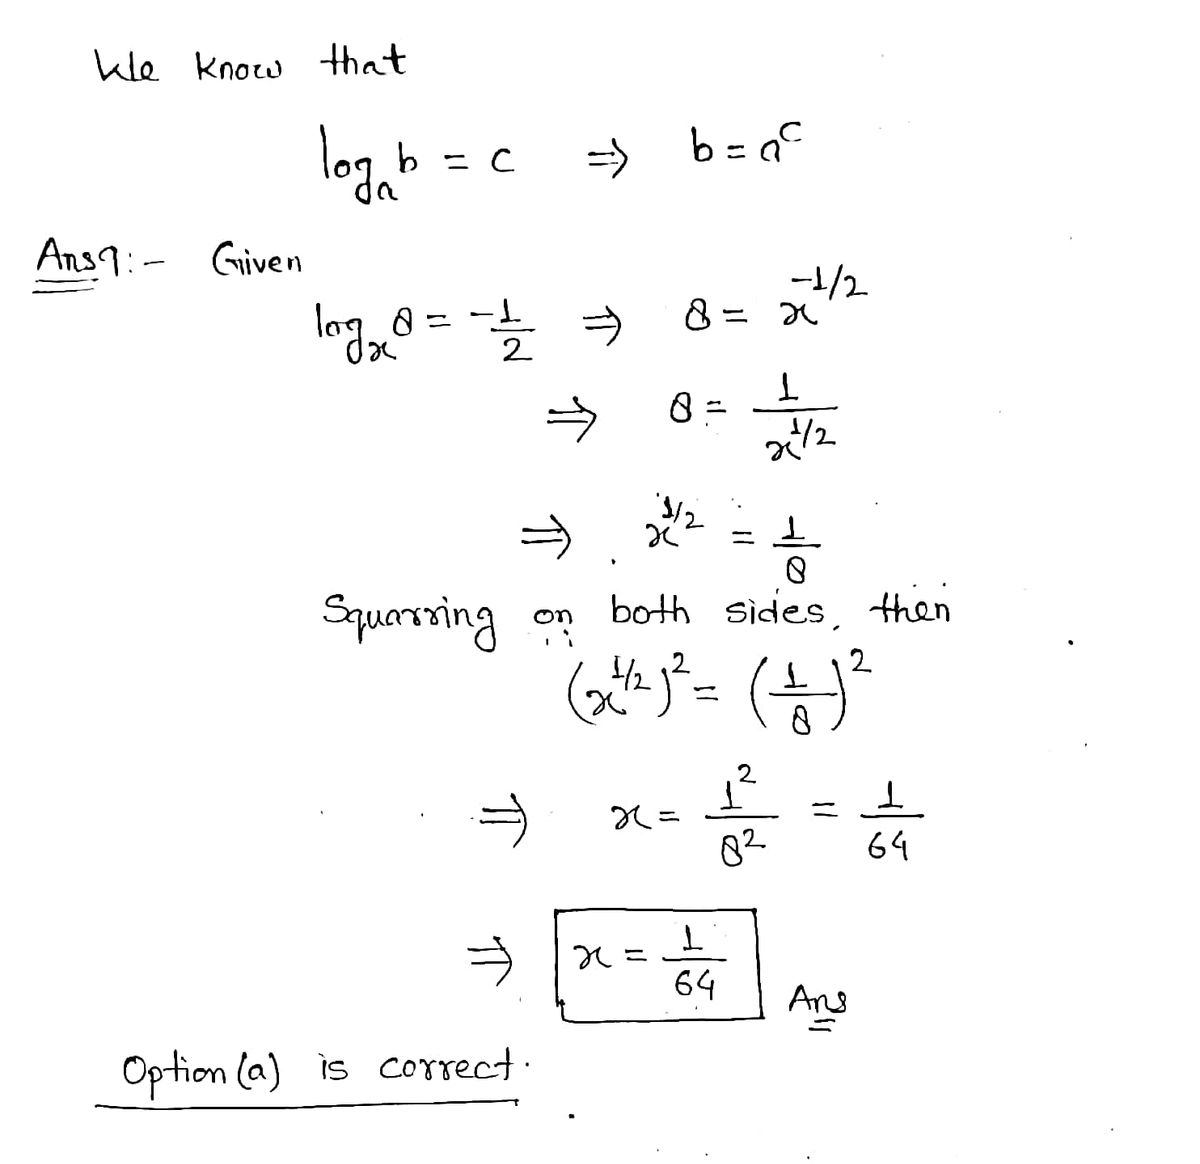 We know that
log_a b = c ⇒ b = a^c
Ans9:- Given
log_x 8 = -1/2 ⇒ 8 = x^{-1/2}
⇒ 8 = 1/x^{1/2}
⇒ x^{1/2} = 1/8
Squarring on both sides, then
(x^{1/2})^2 = (1/8)^2
⇒ x = 1^2/8^2 = 1/64
⇒ x = 1/64 Ans
Option (a) is correct.